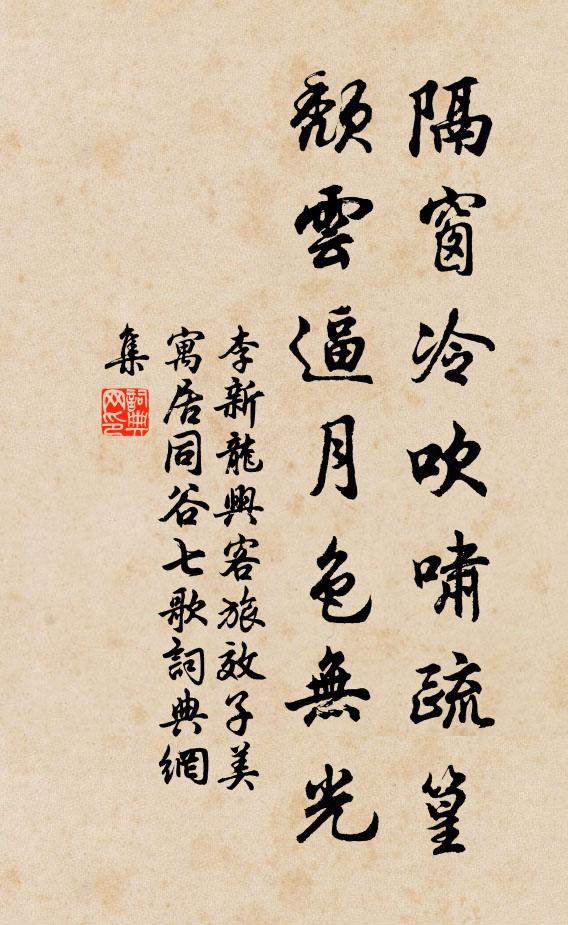 隔窗冷吹嘯疏篁
頹雲逼月色無光
李新龍興客旅效子美
寓居同谷七歌詞典網
集
詞典网印